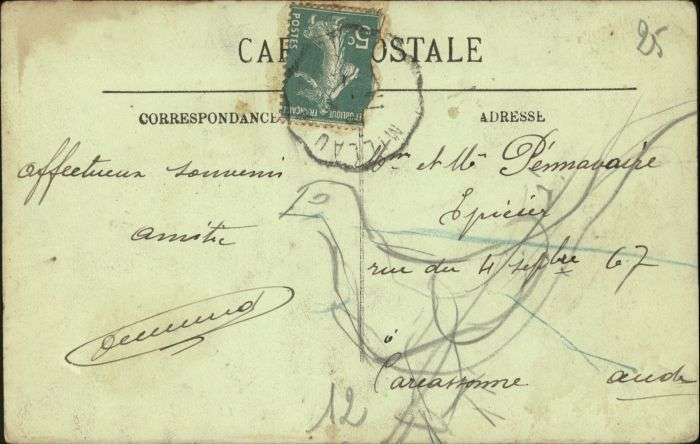 25
CARTE POSTALE
5c
POSTES
REPUBLIQUE FRANÇAISE
MILLAU
CORRESPONDANCE
ADRESSE
Affectueux souvenir
amitié
Mr et Me Pennavaire
Epicier
rue du 4 sepbre 67
à
Carcassonne Aude
12